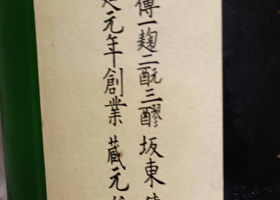 傳一麹二酛三醪 坂東
元年創業 蔵元